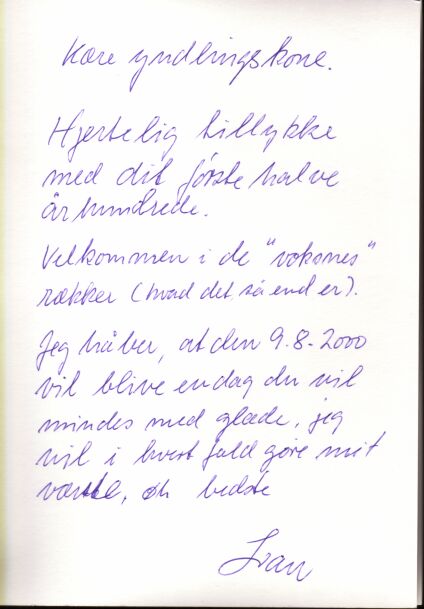 Kære yndlingskone.
Hjertelig tillykke
med dit første halve
århundrede.
Velkommen i de "voksnes"
rækker (hvad det så end er).
Jeg håber, at den 9.8-2000
vil blive en dag du vil
mindes med glæde, jeg
vil i hvert fald gøre mit
værste, øh bedste
Ivan